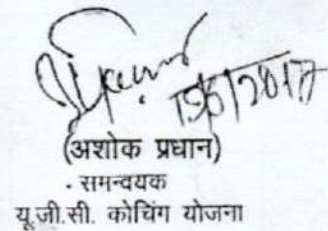 15/6/2017
(अशोक प्रधान)
समन्वयक
यू.जी.सी. कोचिंग योजना